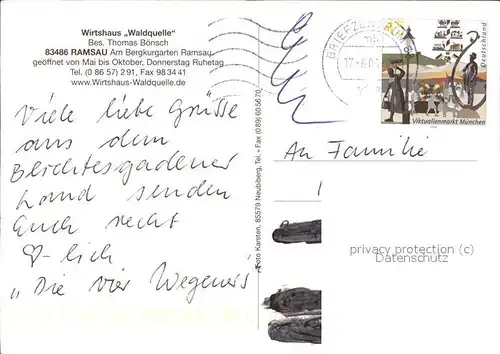 Wirtshaus „Waldquelle"
Bes. Thomas Bönsch
83486 RAMSAU Am Bergkurgarten Ramsau
geöffnet von Mai bis Oktober, Donnerstag Ruhetag
Tel. (0 86 57) 2 91, Fax 98 34 41
www.Wirtshaus-Waldquelle.de
Viele liebe Grüsse
aus dem
Berchtesgadener
Land senden
Euch recht
♡-lich
„Die vier Wegeners"
Foto Karsten, 85579 Neubiberg, Tel. + Fax (0 89) 60 56 70
BRIEFZENTRUM
Deutschland
Viktualienmarkt München
An Familie
privacy protection (c)
Datenschutz